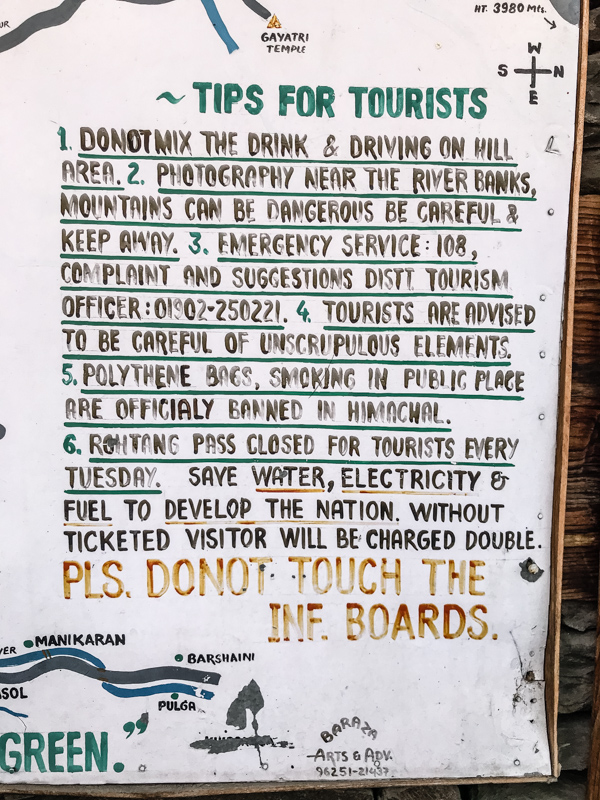 HT. 3980 Mts.
GAYATRI
TEMPLE
W
S N
E
~ TIPS FOR TOURISTS
1. DONOT MIX THE DRINK & DRIVING ON HILL
AREA. 2. PHOTOGRAPHY NEAR THE RIVER BANKS,
MOUNTAINS CAN BE DANGEROUS BE CAREFUL &
KEEP AWAY. 3. EMERGENCY SERVICE: 108,
COMPLAINT AND SUGGESTIONS DISTT TOURISM
OFFICER: 01902-250221. 4. TOURISTS ARE ADVISED
TO BE CAREFUL OF UNSCRUPULOUS ELEMENTS.
5. POLYTHENE BAGS, SMOKING IN PUBLIC PLACE
ARE OFFICIALY BANNED IN HIMACHAL.
6. ROHTANG PASS CLOSED FOR TOURISTS EVERY
TUESDAY. SAVE WATER, ELECTRICITY &
FUEL TO DEVELOP THE NATION. WITHOUT
TICKETED VISITOR WILL BE CHARGED DOUBLE.
PLS. DONOT TOUCH THE
INF. BOARDS.
MANIKARAN
BARSHAINI
PULGA
GREEN."
BARAZA
ARTS & ADV.
96251-21437